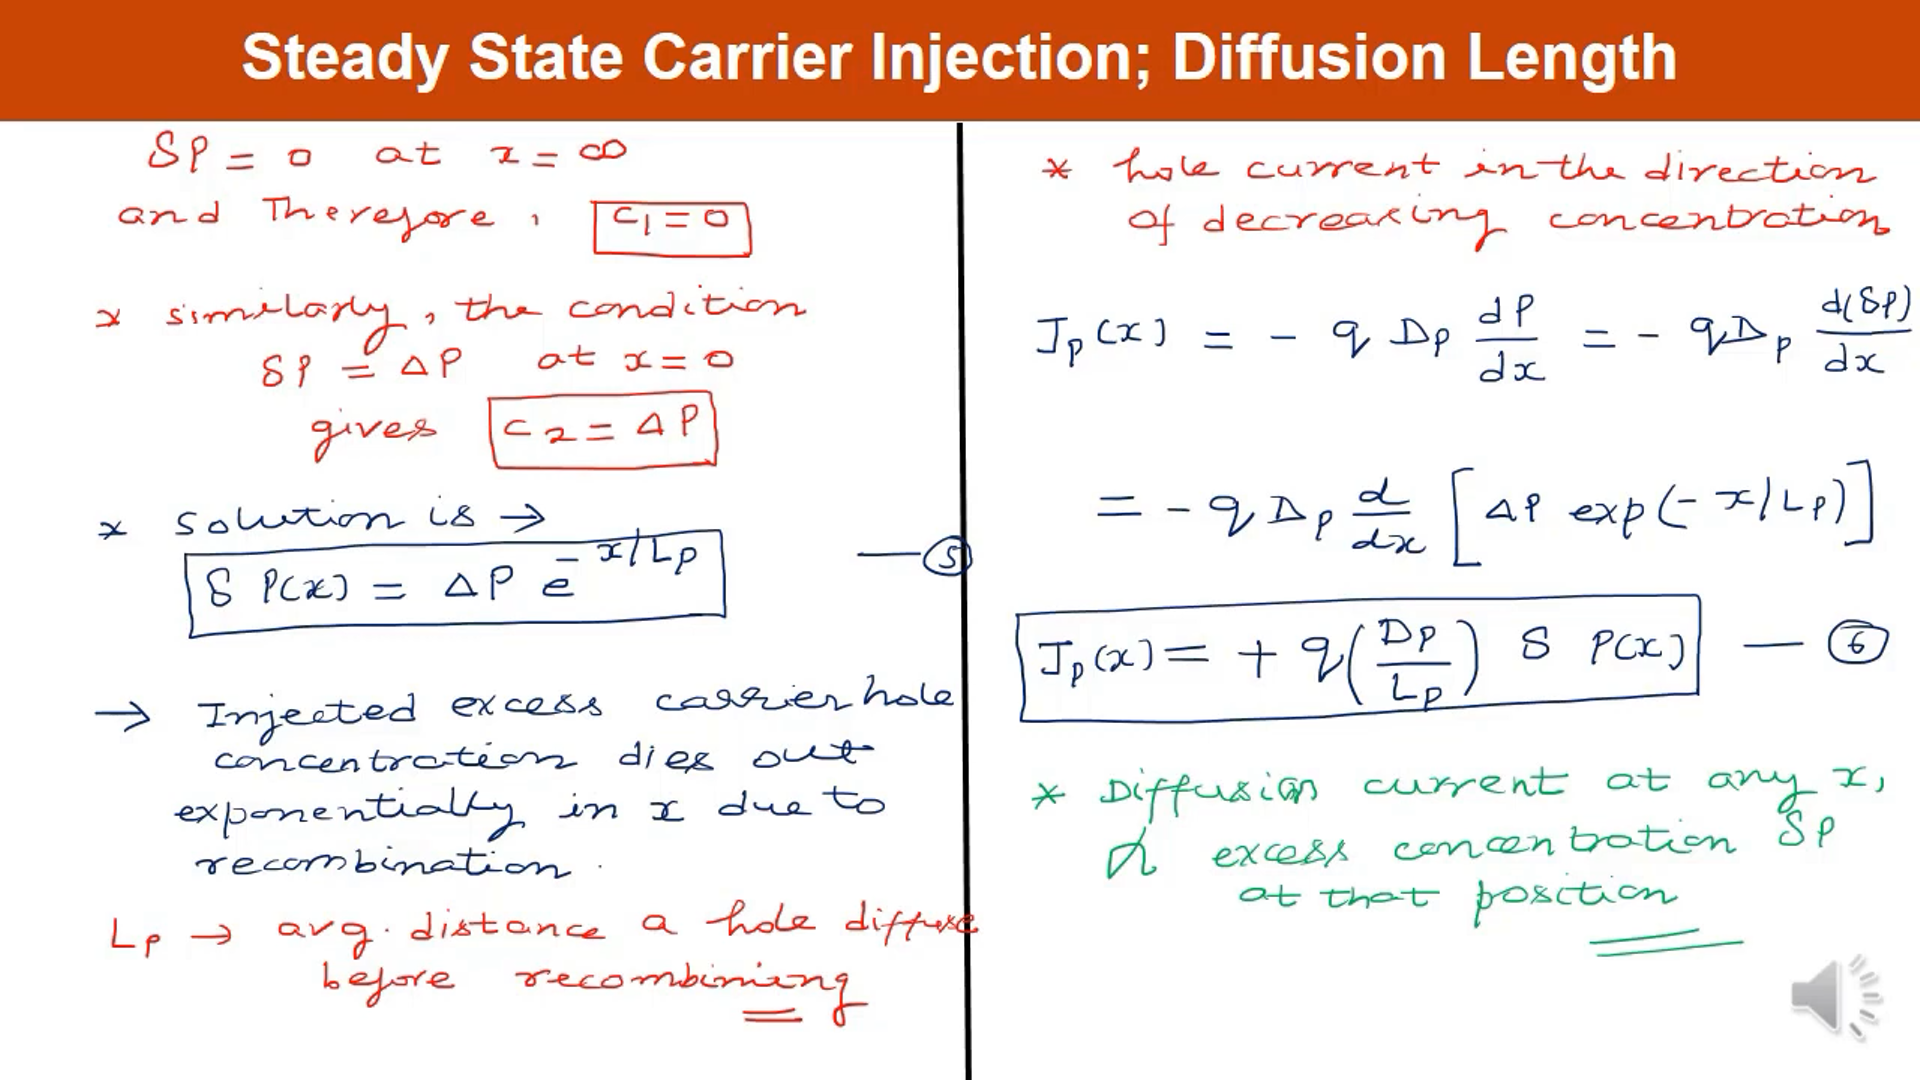 Steady State Carrier Injection; Diffusion Length
δP = 0 at x = ∞
and Therefore, C₁ = 0
* similarly, the condition
δP = ΔP at x = 0
gives C₂ = ΔP
* solution is →
δ P(x) = ΔP e^(-x/Lp) — ⑤
→ Injected excess carrier hole
concentration dies out
exponentially in x due to
recombination.
Lp → avg. distance a hole diffuse
before recombining
* hole current in the direction
of decreasing concentration
Jp(x) = - q Dp dP/dx = - qDp d(δP)/dx
= - q Dp d/dx [ΔP exp(-x/Lp)]
Jp(x) = + q(Dp/Lp) δ P(x) — ⑥
* Diffusion current at any x,
α excess concentration δP
at that position